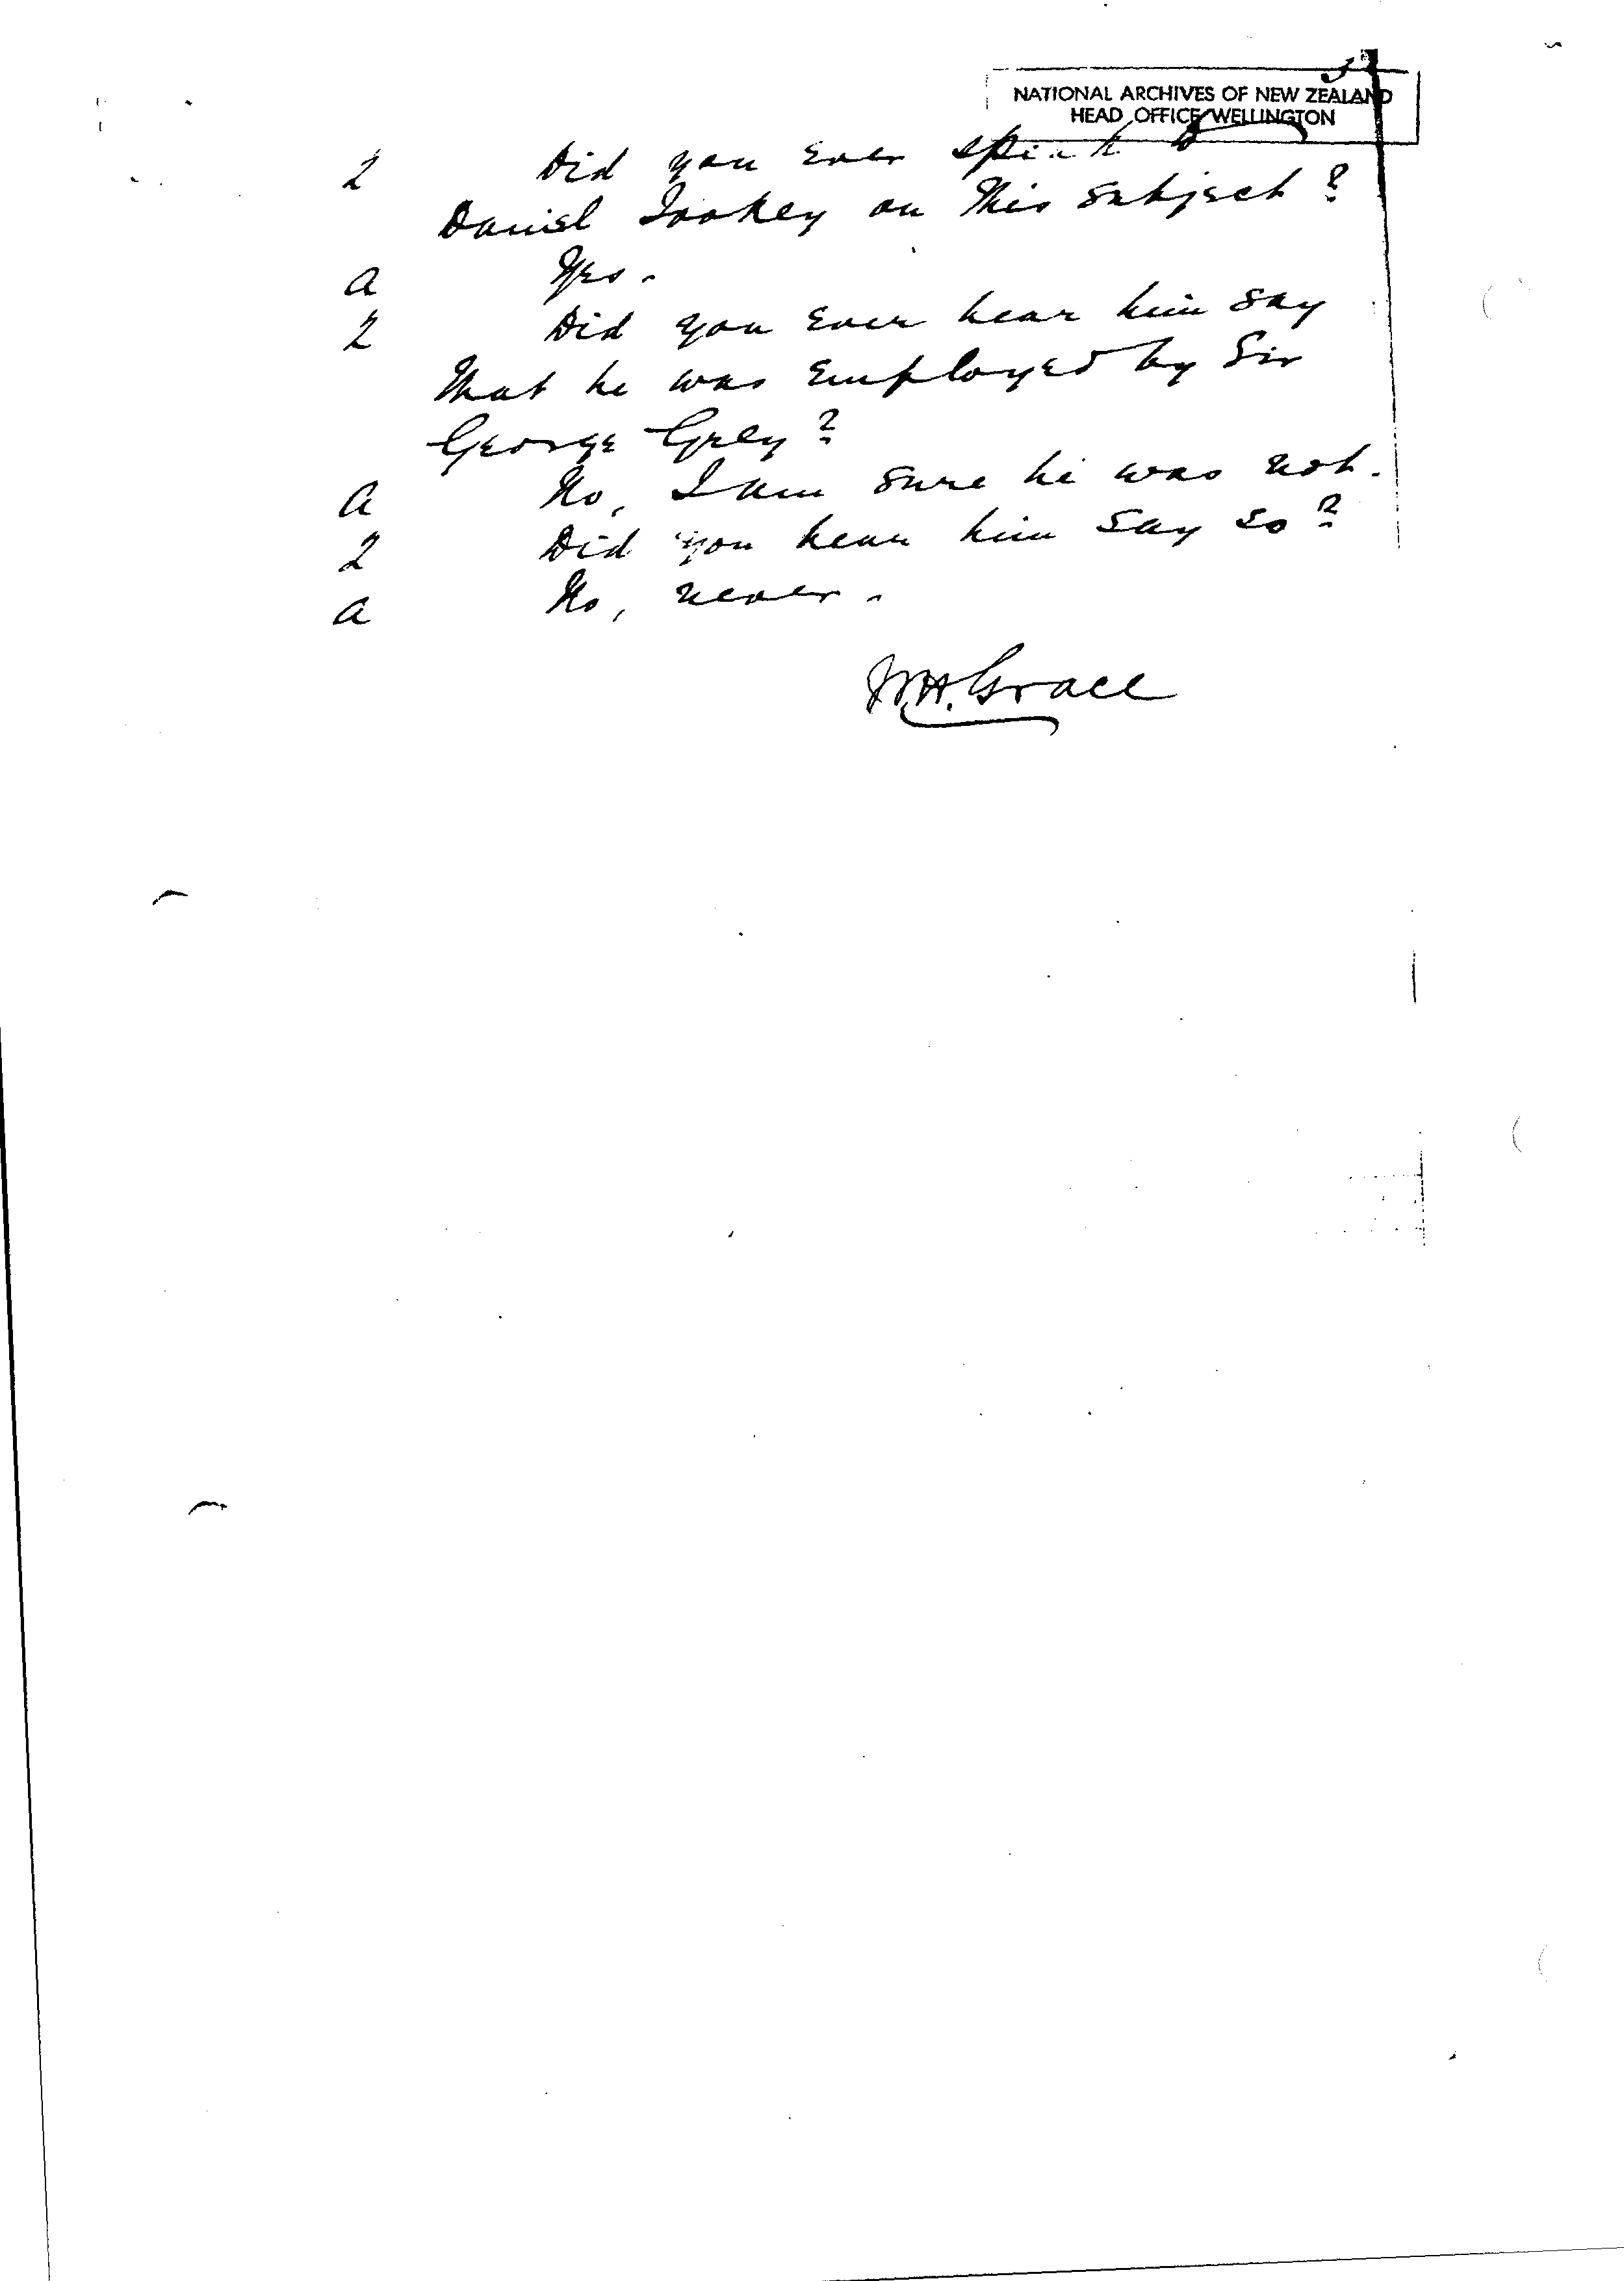 NATIONAL ARCHIVES OF NEW ZEALAND
HEAD OFFICE WELLINGTON
Q Did you ever speak to
Daniel Tookey on this subject?
A Yes.
Q Did you ever hear him say
that he was employed by Sir
George Grey?
A No, I am sure he was not.
Q Did you hear him say so?
A No, never.
W.H. Grace